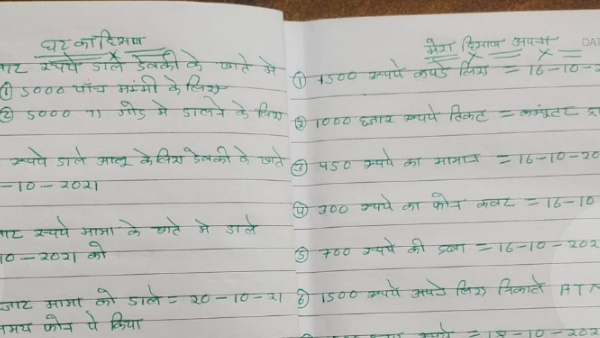 घर का हिसाब
रुपये डाले देवकी के खाते मे
① 5000 पाँच मम्मी के लिए
② 5000 11 गोड मे डालने के लिए
रुपये डाले आलू के लिए देवकी के खाते
-10-2021
रुपये मामा के खाते मे डाले
10-2021 को
मामा को डाले = 20-10-21
समय फोन पे किया
मेरा हिसाब अपना
DA
① 4500 रुपये कपडे लिए = 16-10-2
② 1000 हजार रुपये टिकट =
③ 450 रुपये का सामान = 16-10-20
④ 300 रुपये का फोन कवर = 16-10
⑤ 700 रुपये की दवा = 16-10-202
⑥ 1500 रुपये अपने लिए निकाले ATM
रुपये = 18-10-202